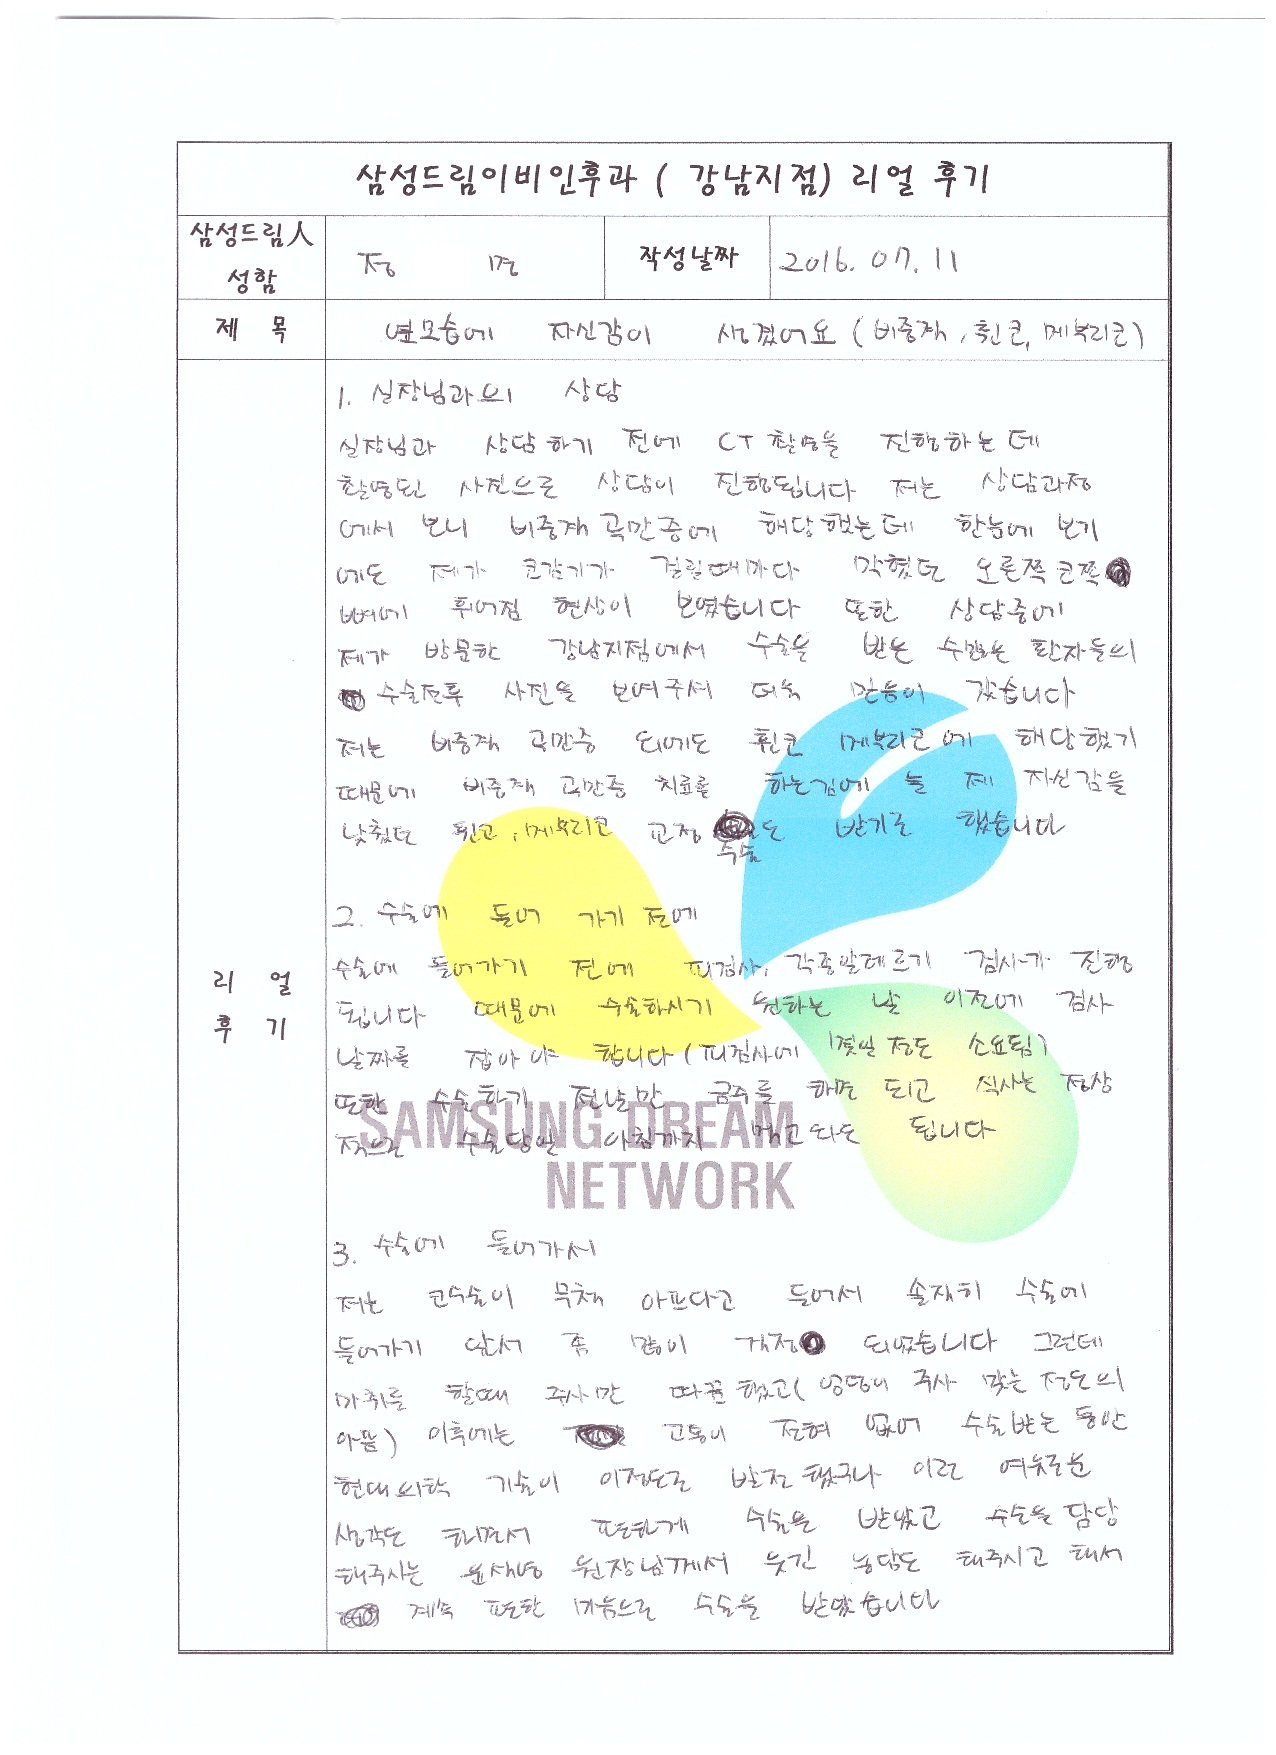 삼성드림이비인후과 ( 강남지점) 리얼 후기
삼성드림人
성함
정 면
작성날짜
2016. 07. 11
제 목
옆모습에 자신감이 생겼어요 (비중격, 휜코, 메부리코)
리 얼
후 기
1. 실장님과의 상담
실장님과 상담하기 전에 CT 촬영을 진행하는데
촬영된 사진으로 상담이 진행됩니다 저는 상담과정
에서 보니 비중격 곡만증에 해당했는데 한눈에 보기
에도 제가 코감기가 걸릴때마다 막혔던 오른쪽 코쪽
뼈에 휘어짐 현상이 보였습니다 또한 상담중에
제가 방문한 강남지점에서 수술을 받은 수많은 환자들의
수술전후 사진을 보여주셔 더욱 믿음이 갔습니다
저는 비중격 곡만증 외에도 휜코 메부리코에 해당했기
때문에 비중격 곡만증 치료를 하는김에 늘 제 자신감을
낮췄던 휜코, 메부리코 교정 수술도 받기로 했습니다
2. 수술에 들어 가기 전에
수술에 들어가기 전에 피검사, 각종알레르기 검사가 진행
됩니다 때문에 수술하시기 원하는 날 이전에 검사
날짜를 잡아야 합니다 (피검사에 정도 소요됨)
또한 수술하기 전날만 금주를 하면 되고 식사는 정상
적으로 수술당일 아침까지 먹고와도 됩니다
SAMSUNG DREAM
NETWORK
3. 수술에 들어가서
저는 코수술이 무척 아프다고 들어서 솔직히 수술에
들어가기 앞서 좀 많이 걱정 되었습니다 그런데
마취를 할때 주사만 따끔했고( 엉덩이 주사 맞는 정도의
아픔) 이후에는 고통이 전혀 없어 수술받는 동안
현대의학 기술이 이정도로 발전했구나 이런 여유로운
생각도 하면서 편하게 수술을 받았고 수술을 담당
해주시는 원장님께서 웃긴 농담도 해주시고 해서
계속 편한 마음으로 수술을 받았습니다